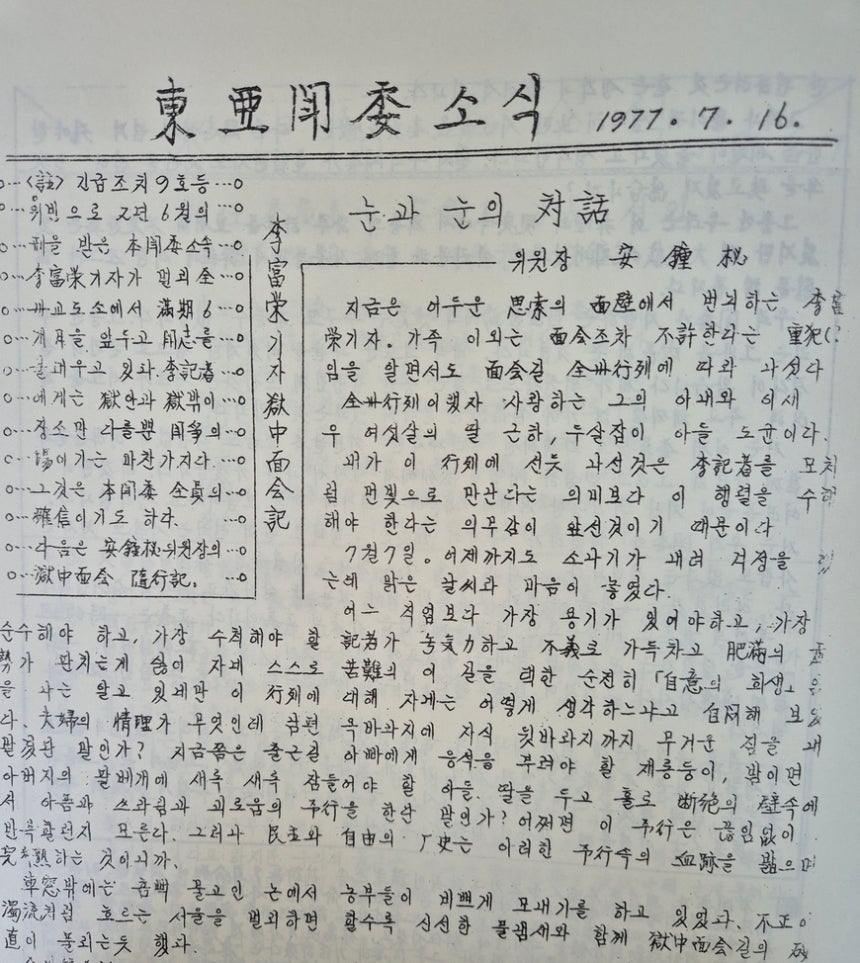 東亜闘委 소식 1977. 7. 16.
o…<註> 긴급조치9호등…o
o…위반으로 75년 6월의…o
o…刑을 받은 本闘委소속
o…李富栄기자가 현재 全…o
o…州교도소에서 満期 6…o
o…개月을 앞두고 闘志를
o…불태우고 있다. 李記者…o
o…에게는 獄안과 獄밖이…o
o…장소만 다를뿐 闘争의…o
o…場이기는 마찬가지다.…o
o…그것은 本闘委 全員의…o
o…確信이기도 하다. …o
o…다음은 安鐘柲위원장의…o
o…獄中面会 隨行記. …o
李富栄기자 獄中面会記
눈과 눈의 対話
위원장 安鐘柲
지금은 어두운 思索의 面壁에서 번뇌하는 李富
栄기자. 가족 이외는 面会조차 不許한다는 重犯(?
임을 알면서도 面会길 全州行列에 따라 나섰다
全州行列이랬자 사랑하는 그의 아내와 이세
우 여섯살의 딸 근하, 두살잡이 아들 도균이다.
내가 이 行列에 선듯 나선것은 李記者를 모처
럼 먼빛으로 만난다는 의미보다 이 행렬을 수행
해야 한다는 의무감이 앞선것이기 때문이다
7월7일. 어제까지도 소나기가 내려 걱정을
는데 맑은 날씨과 마음이 놓였다.
어느 직업보다 가장 용기가 있어야하고, 가장
순수해야 하고, 가장 수척해야 할 記者가 無気力하고 不義로 가득차고 肥満의
勢가 판치는게 싫어 자네 스스로 苦難의 이 길을 택한 순전히 「自意의 희생」
을 나는 알고 있네만 이 行列에 대해 자네는 어떻게 생각하느냐고 自問해 보았
다. 夫婦의 情理가 무엇인데 남편 옥바라지에 자식 뒷바라지까지 무거운 짐을 내
맡겼단 말인가? 지금쯤은 출근길 아빠에게 응석을 부려야 할 재롱둥이, 밤이면
아버지의 팔베개에 새록 새록 잠들어야 할 아들. 딸을 두고 홀로 断絶의 壁속에
서 아픔과 쓰라림과 괴로움의 予行을 한단 말인가? 어쩌면 이 予行은 끊임없이
반복할런지 모른다. 그러나 民主와 自由의 歷史는 이러한 予行속의 血跡을 밟으며
完熟하는 것이니까.
車窓밖에는 흠뻑 물고인 논에서 농부들이 바쁘게 모내기를 하고 있었다. 不正이
濁流처럼 흐르는 서울을 벗어나면 할수록 신선한 풀냄새와 함께 獄中面会길의
直이 풀리는듯 했다.